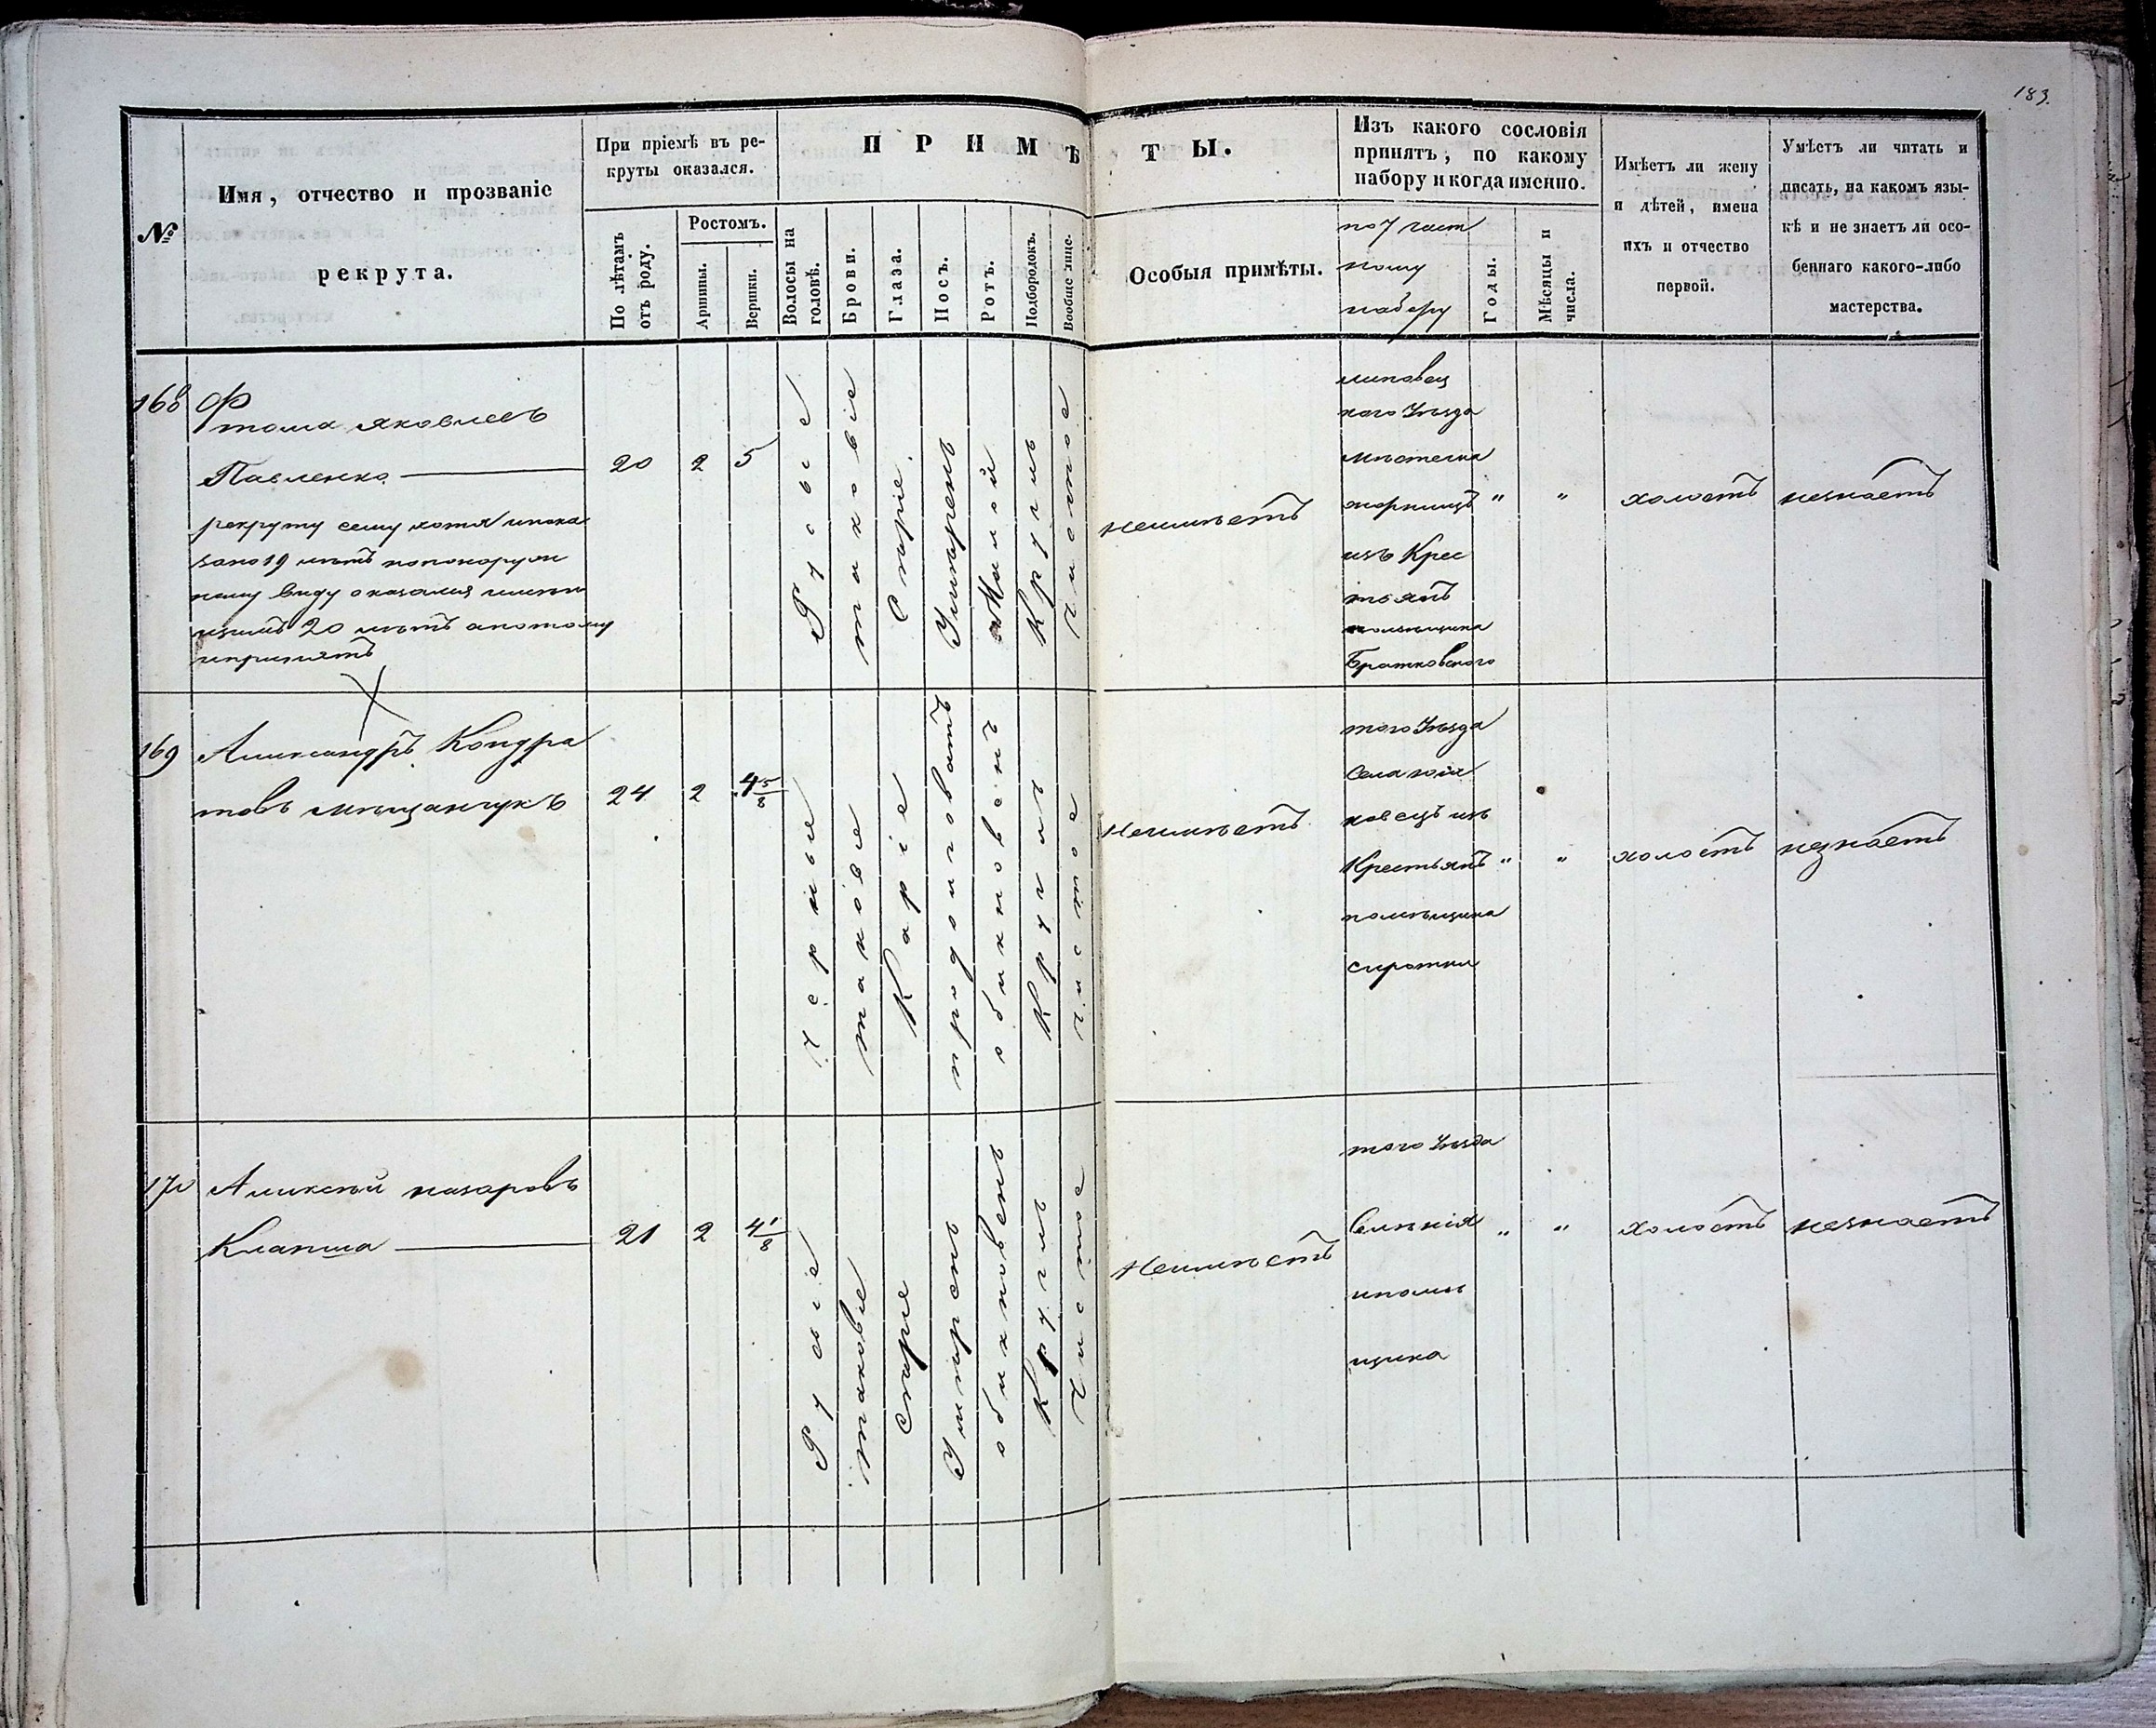 183.
№
Имя, отчество и прозваніе
рекрута.
При пріемѣ въ ре-
круты оказался.
По лѣтамъ
отъ роду.
Ростомъ.
Аршины.
Вершки.
ПРИМѢТЫ.
Волосы на
головѣ.
Брови.
Глаза.
Носъ.
Ротъ.
Подбородокъ.
Вообще лице.
Особыя примѣты.
Изъ какого сословія
принятъ, по какому
набору и когда именно.
по 7 част
ному
набору
Годы.
Мѣсяцы и
числа.
Имѣетъ ли жену
и дѣтей, имена
ихъ и отчество
первой.
Умѣетъ ли читать и
писать, на какомъ язы-
кѣ и не знаетъ ли осо-
беннаго какого-либо
мастерства.
168
Фтома яковлевъ
Павленко
рекруту сему хотя ипока
зано 19 лѣтъ нопонаруж
ному виду оказался
20 лѣтъ апотому
ипринятъ
20
2
5
Русые
таковіе
Сѣріе
Умѣренъ
Малой
Круглъ
Чистое
неимѣетъ
липовец
каго Уѣзда
мѣстечка
жорнищъ
изъ Крес
тьянъ
помѣщика
Братковского
"
"
холостъ
незнаетъ
169
Александръ Кондра
товъ мѣщанчукъ
24
2
4 5/8
Черные
таковіе
Каріе
продолговатъ
обикновенъ
Круглъ
Чистое
Неимѣетъ
того Уѣзда
Села
изъ
Крестьянъ
помѣщика
сиротки
"
"
холостъ
незнаетъ
170
Алексѣй назаровъ
Клапша
21
2
4 1/8
Русіе
таковіе
Сѣріе
Умѣренъ
обикновенъ
Круглъ
Чистое
Неимѣетъ
того Уѣзда
ипомѣ
щика
"
"
холостъ
незнаетъ